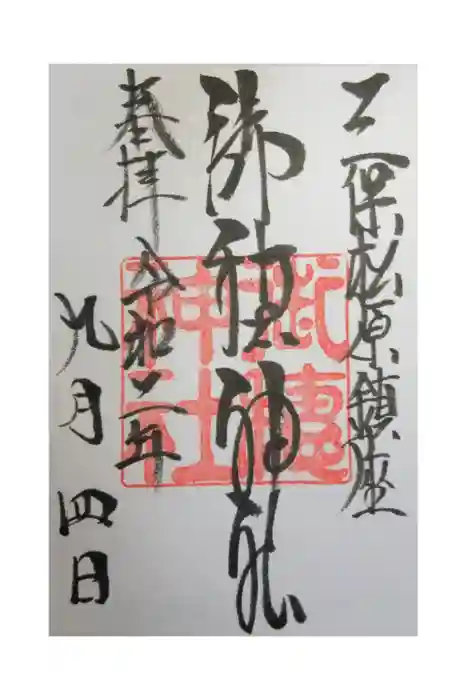 三保松原鎮座
御穂神社
奉拝 令和三年
九月四日
御穂
神社